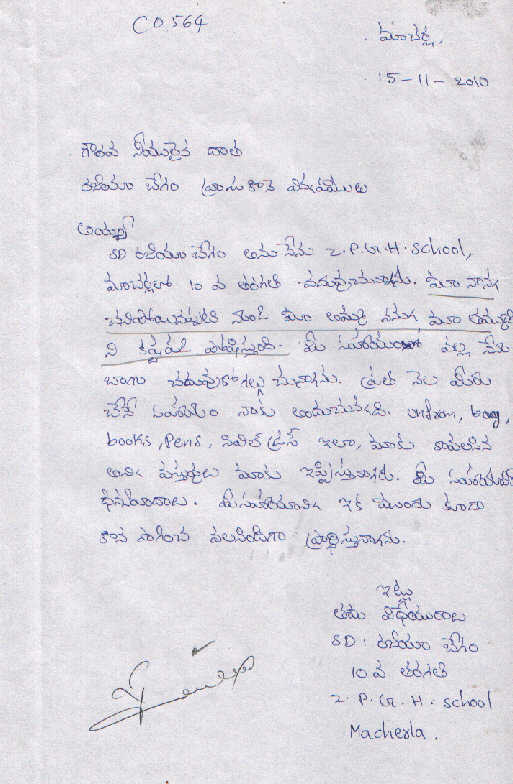 CO 564
మాచెర్ల,
15-11-2010
గౌరవ నీయులైన దాత
రజియా బేగం వ్రాసుకొనే విన్నపములు
అయ్యా
SD రజియా బేగం అను నేను Z.P.G.H. school,
మాచెర్లలో 10 వ తరగతి చదువుచున్నాను. మా నాన్న
చనిపోయినప్పటి నుండి మా అమ్మే నన్ను మా
ని కష్టపడి పోషిస్తుంది. మీ సహాయం వల్ల నేను
బాగా చదువుకోగల్గుచున్నాను. ప్రతి నెల మీరు
చేసే సహాయం నాకు అందుచున్నది. Uniform, bag,
books, Pens, సివిల్ డ్రస్ ఇలా, మాకు కావలసిన
అనేక వస్తువులు మాకు ఇప్పిస్తున్నారు. మీ సహాయానికి
ధన్యవాదాలు. మీ సహాయాన్ని ఇక ముందు కూడా
కొన సాగించ వలసిందిగా ప్రార్థిస్తున్నాను.
ఇట్లు
తమ విధేయురాలు
SD. రజియా బేగం
10 వ తరగతి
Z. P. G. H. school
Macherla.